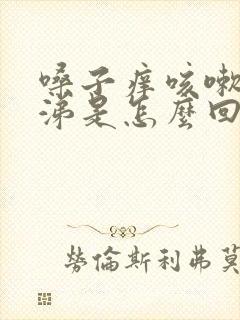 嗓子痒咳嗽
涕是怎麼回
勞倫斯利弗莫